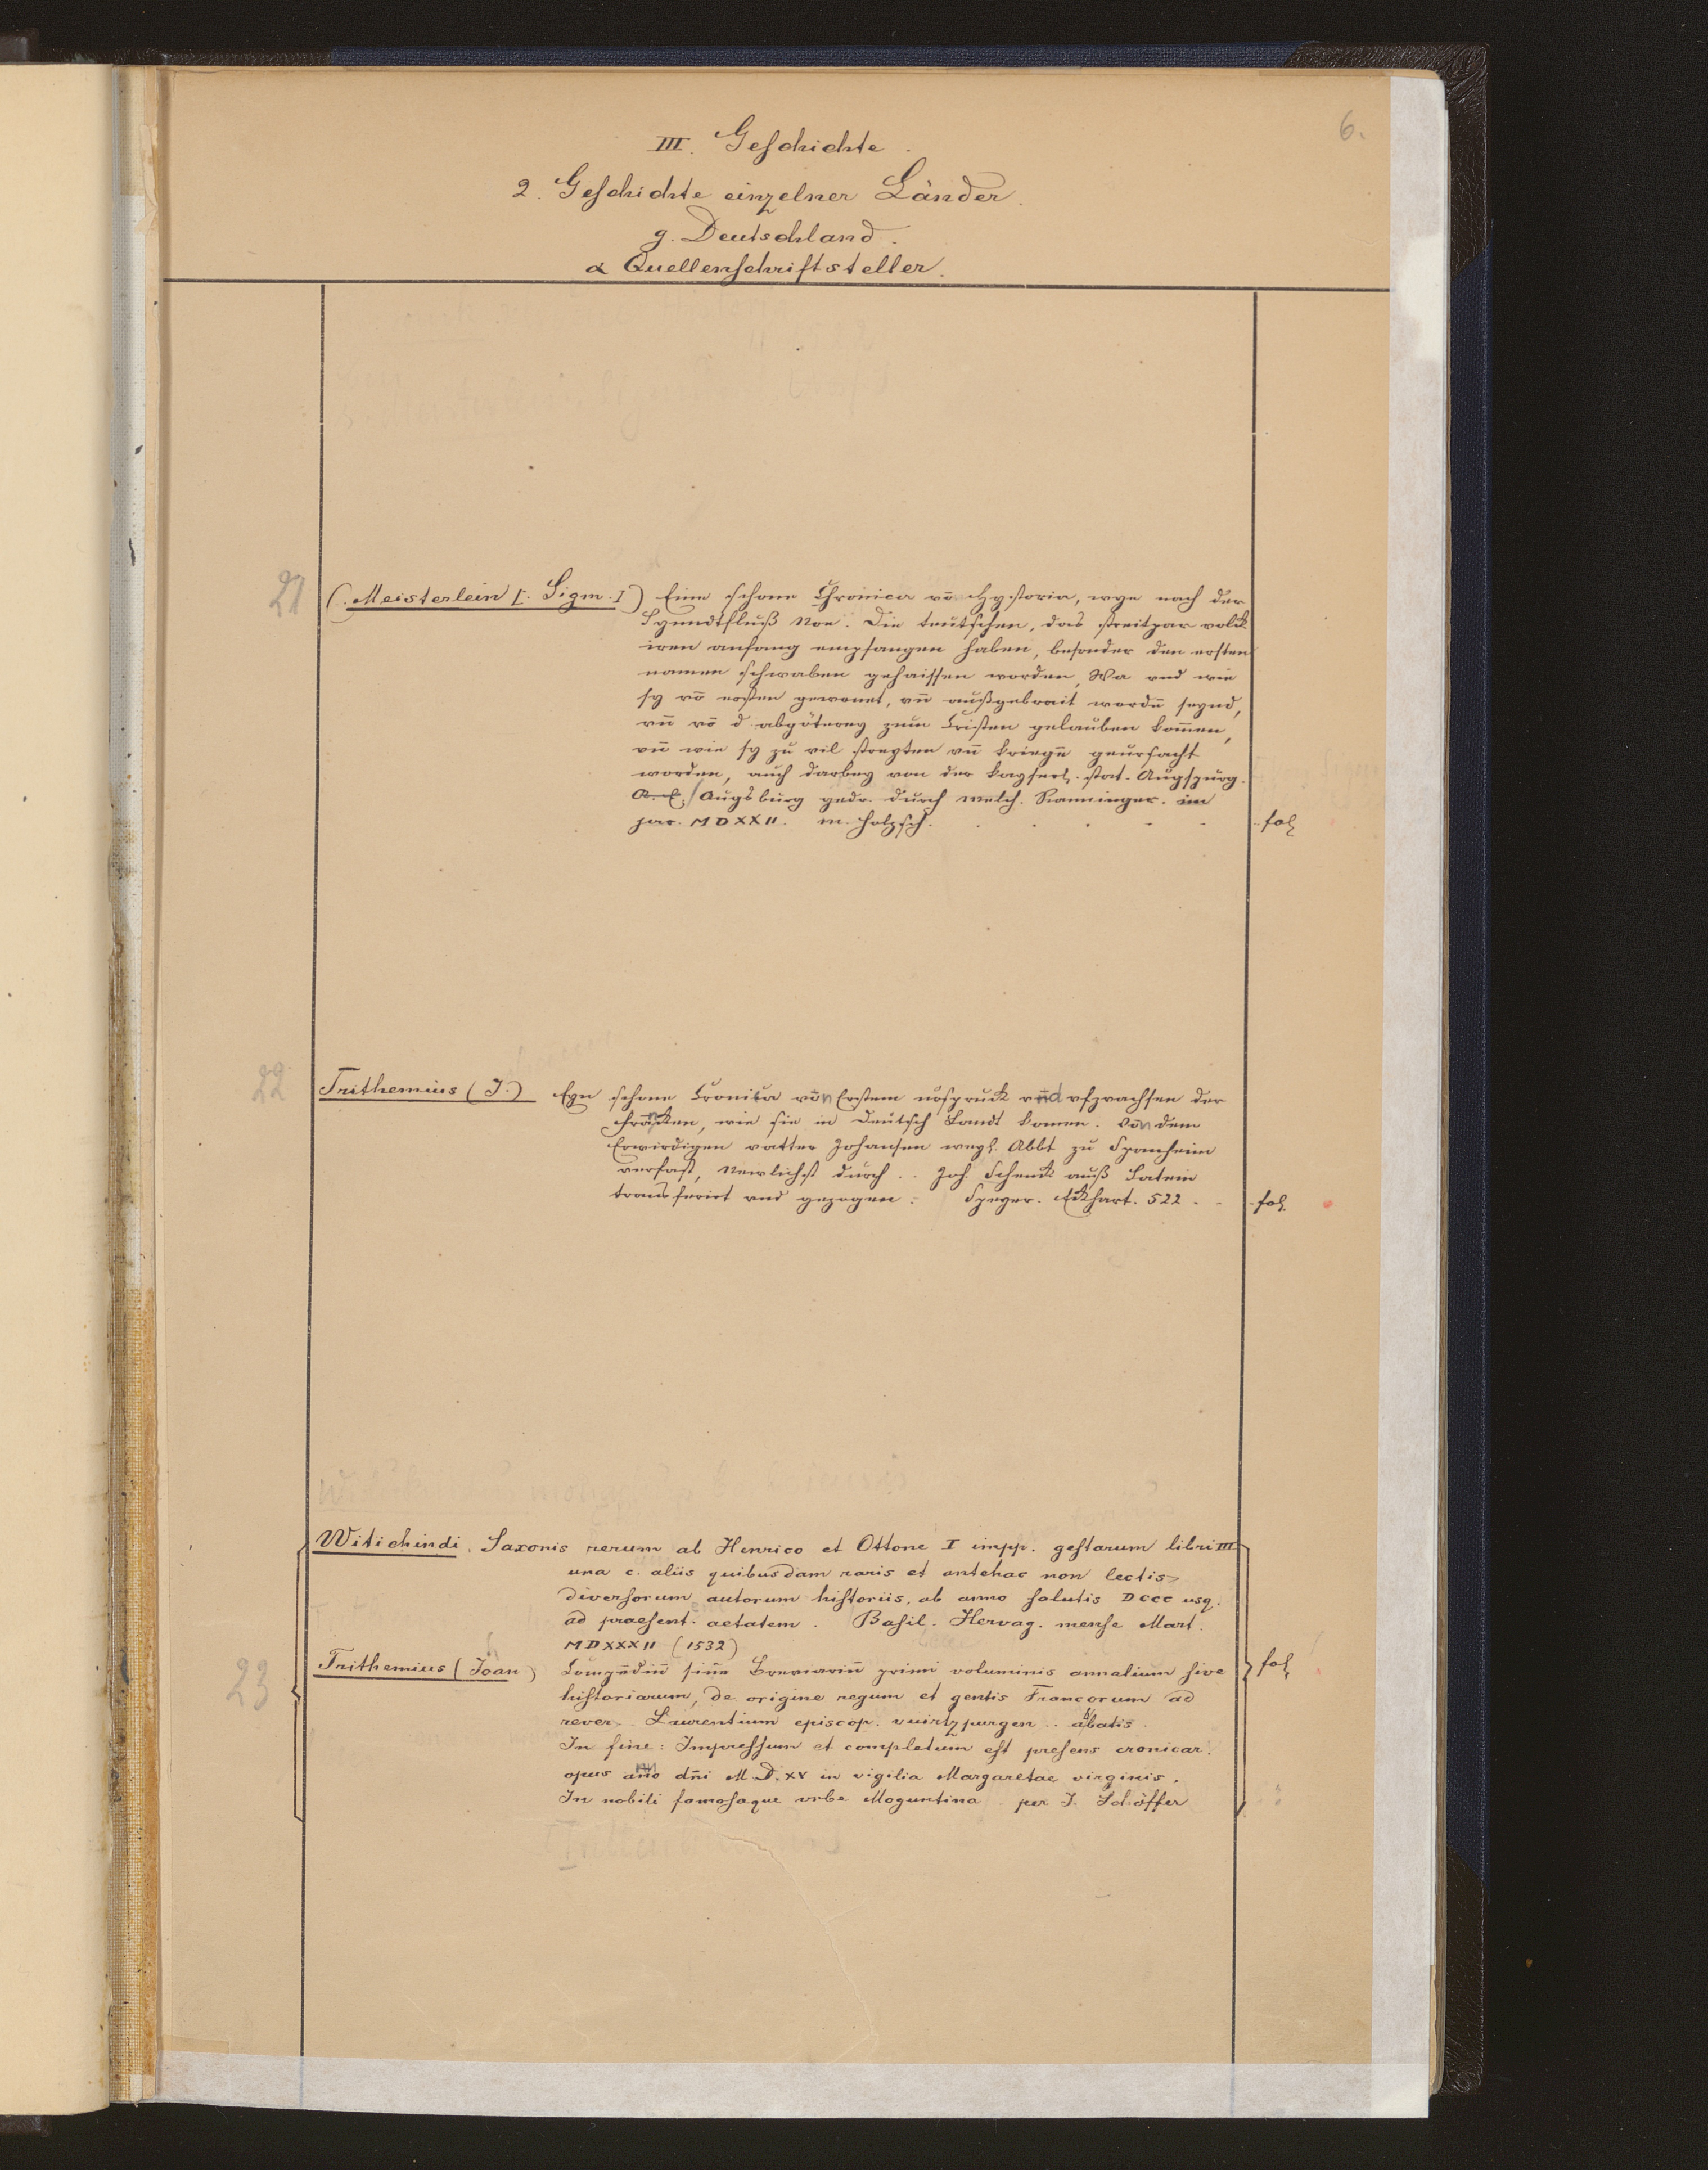 6.
III. Geschichte.
2. Geschichte einzelner Länder.
g. Deutschland.
α Quellenschriftsteller.
21 (Meisterlein [: Sigm.]) Eine schone Chronica vō Hystoria, wye nach der
Syndtfluß Noe. Die teutschen, das streitpar volck
iren anfang empfangen haben, besonder den ersten
namen schwaben gehaissen worden, Wa und wie
sy vō ersten gewonet, vn̄ außgebrait wordē seynd,
vn̄ vō d abgöterey zum Cristen gelauben kom̄en,
vn̄ wie sy zu vil streyten vn̄ kriegē geursacht
worden, auch darbey von der kayserl. stat. Augspurg.
A. E. / Augsburg gedr. durch Melch. Ramminger. im
jar. MDXXII. m. Holzsch. fol
22 Trithemius (J.) Eyn schone Cronica von Erstem ursprunck vnd vfzwachsen der
Francken, wie sie in Deutsch Landt komen. Von dem
Erwirdigen vatter Johansen weyl. Abbt zu Spanheim
verfast, Newlichst durch .. Joh. Schenck auß Latein
transferirt und gezogen: Speyer. Eckhart. 522. fol.
Witichindi. Saxonis rerum ab Henrico et Ottone I impp. gestarum libri III
una c. aliis quibusdam raris et antehac non lectis
diversorum autorum historiis, ab anno salutis DCCC usq.
ad praesent. aetatem. Basil. Hervag. mense Mart.
MDXXXII (1532)
23 Trithemius (Joan) Compēdiū siue Breviariū primi voluminis annalium sive fol
historiarum, de origine regum et gentis Francorum ad
rever. Laurentium episcop. vuirtzpurgen .. abbatis.
In fine: Impressum et completum est presens cronicar.
opus anno dn̄i M.D.XV in vigilia Margaretae virginis.
In nobili famosaque urbe Moguntina. per J. Schöffer